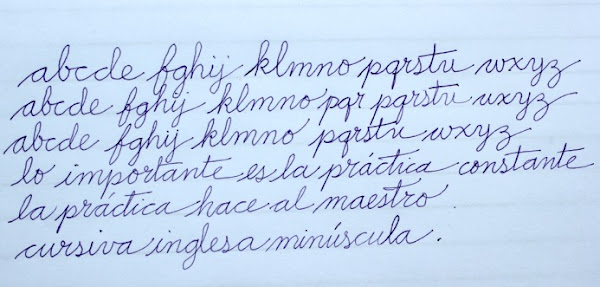 abcde fghij klmno pqrstu wxyz
abcde fghij klmno pqr pqrstu uxyz
abcde fghij klmno pqrstu wxyz
lo importante es la práctica constante
la práctica hace al maestro.
cursiva inglesa minúscula.